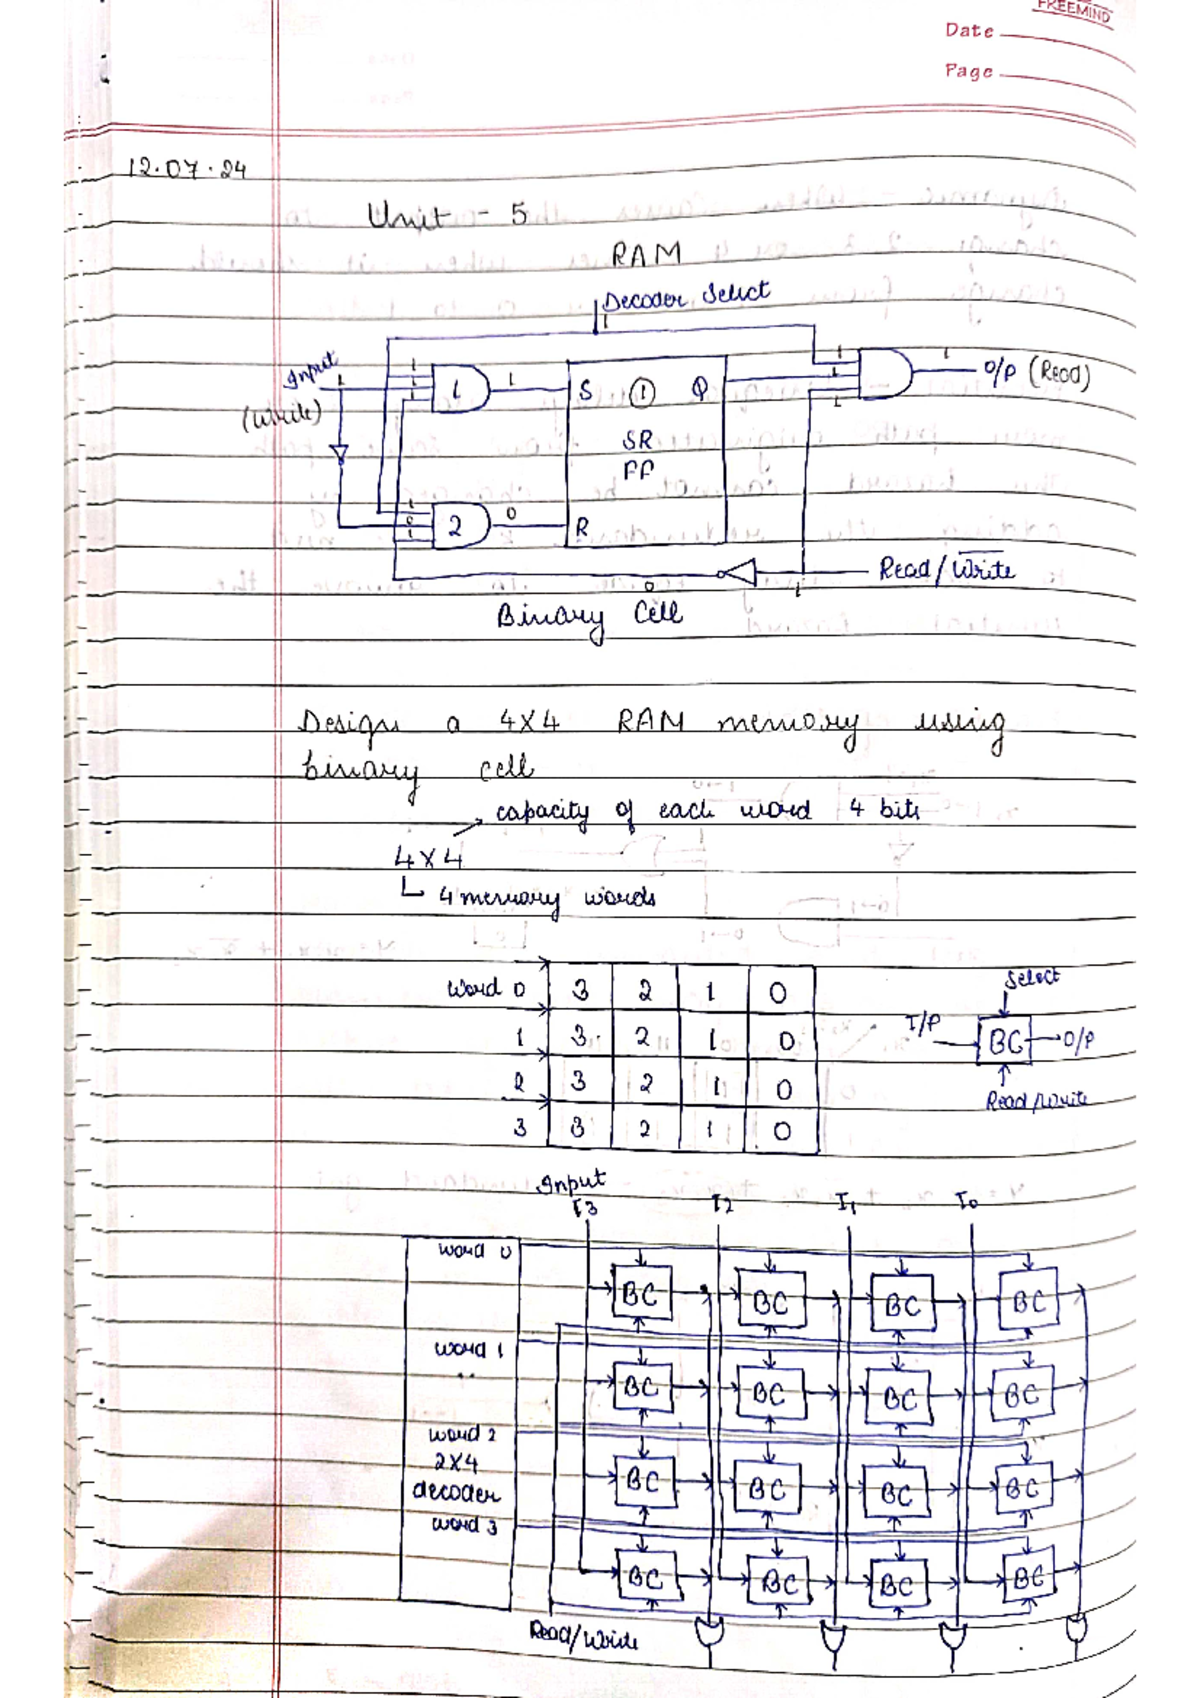 FREEMIND
Date
Page
12.07.24
Unit - 5
RAM
Decoder Select
1
Input
(Write)
1
1
1
1
1
1
S
1
Q
1
1
1
1
O/P (Read)
SR
FF
1
0
1
2
0
R
0
1
Read/Write
Binary Cell
Design a 4X4 RAM memory using
binary cell
capacity of each word 4 bits
4X4
4 memory words
Word 0 3 2 1 0
1 3 2 1 0
2 3 2 1 0
3 3 2 1 0
Select
I/P
BC
O/P
Read/Write
Input
I3 I2 I1 I0
word 0
BC BC BC BC
word 1
BC BC BC BC
word 2
2X4
decoder
BC BC BC BC
word 3
BC BC BC BC
Read/Write